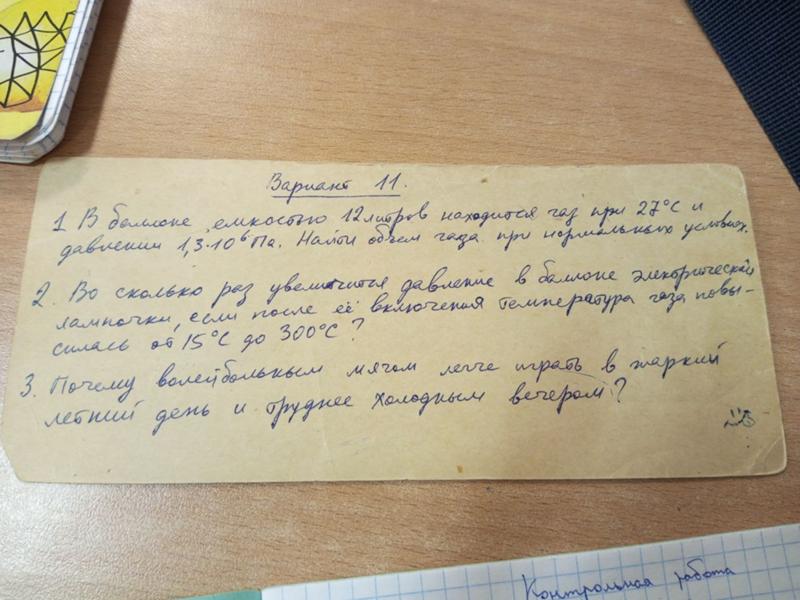 Вариант 11.
1 В баллоне емкостью 12 литров находится газ при 27°С и
давлении 1,3·10⁶ Па. Найти объем газа при нормальных условиях.
2. Во сколько раз увеличится давление в баллоне электрической
лампочки, если после её включения температура газа повы-
силась от 15°С до 300°С?
3. Почему волейбольным мячом легче играть в жаркий
летний день и труднее холодным вечером?
Контрольная работа